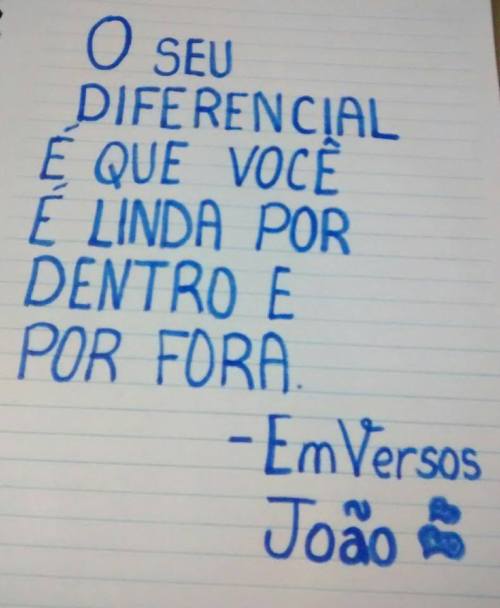 O SEU
DIFERENCIAL
É QUE VOCÊ
É LINDA POR
DENTRO E
POR FORA.
- EmVersos
João